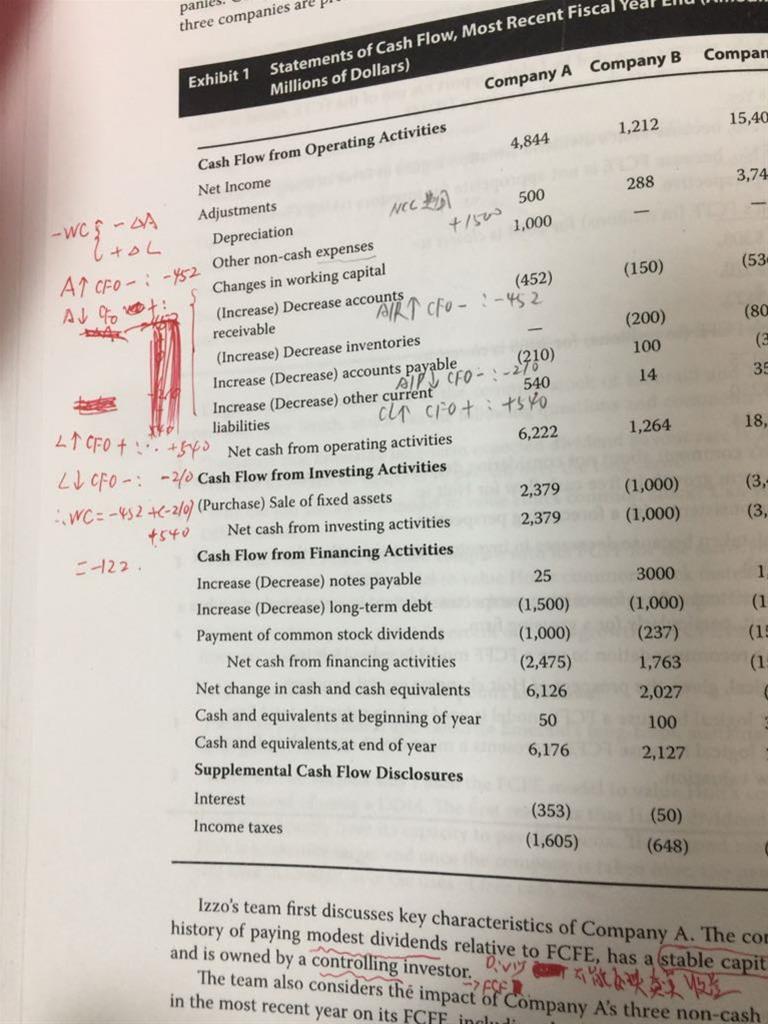 panies.
three companies are
Exhibit 1 Statements of Cash Flow, Most Recent Fiscal Year End
Millions of Dollars)
Company A Company B Compan
Cash Flow from Operating Activities
Net Income 4,844 1,212 15,40
Adjustments
NCC
Depreciation 500 288 3,74
+1500
Other non-cash expenses 1,000 — —
Changes in working capital
(Increase) Decrease accounts
receivable (452) (150) (53
A/R↑ CFO - : -452
(Increase) Decrease inventories — (200) (80
Increase (Decrease) accounts payable (210) 100 (3
A/P↓ CFO - : -210
Increase (Decrease) other current
liabilities 540 14 35
CL↑ CFO + : +540
Net cash from operating activities 6,222 1,264 18,
Cash Flow from Investing Activities
(Purchase) Sale of fixed assets 2,379 (1,000) (3,
Net cash from investing activities 2,379 (1,000) (3,
Cash Flow from Financing Activities
Increase (Decrease) notes payable 25 3000 1
Increase (Decrease) long-term debt (1,500) (1,000) (1
Payment of common stock dividends (1,000) (237) (15
Net cash from financing activities (2,475) 1,763 (1
Net change in cash and cash equivalents 6,126 2,027
Cash and equivalents at beginning of year 50 100
Cash and equivalents, at end of year 6,176 2,127
Supplemental Cash Flow Disclosures
Interest (353) (50)
Income taxes (1,605) (648)
-WC { -ΔA
+ΔL
A↑ CFO - : -452
A↓ CFO + :
L↑ CFO + : +540
L↓ CFO - : -210
∴ WC = -452 + (-210)
+540
= -122.
Izzo's team first discusses key characteristics of Company A. The con
history of paying modest dividends relative to FCFE, has a stable capit
and is owned by a controlling investor.
The team also considers the impact of Company A's three non-cash
in the most recent year on its FCFE,